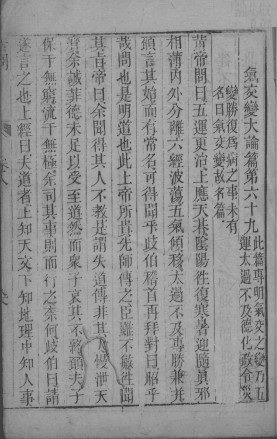 氣交變大論篇第六十九
此篇專明氣交之變乃五
運太過不及德化政令災
變勝復爲病之事末有
名曰氣交變故名篇
黃帝問曰五運更治上應天朞陰陽徃復寒暑迎隨眞邪
相薄內外分離六經波蕩五氣傾移太過不及專勝兼并
願言其始而有常名可得聞乎歧伯稽首再拜對曰昭乎
哉問也是明道也此上帝所貴先師傳之臣雖不敏徃聞
其旨帝曰余聞得其人不教是謂失道傳非其人慢泄天
寶余誠菲德未足以受至道然而衆子哀其不終願夫子
保于無窮流于無極余司其事則而行之奈何歧伯曰請
遂言之也上經曰夫道者上知天文下知地理中知人事